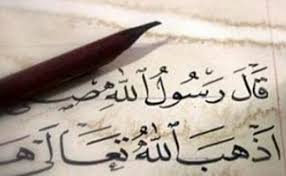 قَالَ رَسُولُ اللهِ
اَذْهَبَ اللهُ تَعَالَى